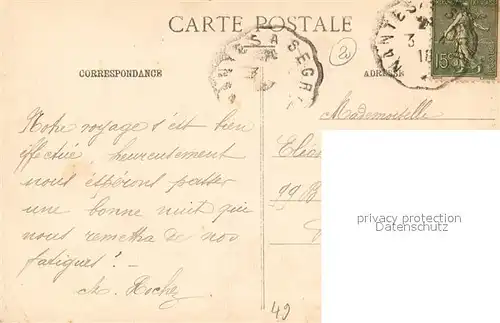 CARTE POSTALE
NANTES A SEGRÉ
3
NANTES
3
18
15
CORRESPONDANCE
ADRESSE
20
Notre voyage s'est bien
effectué, heureusement
nous espérons passer
une bonne nuit qui
nous remettra de nos
fatigues! —
Mademoiselle
privacy protection
Datenschutz
49